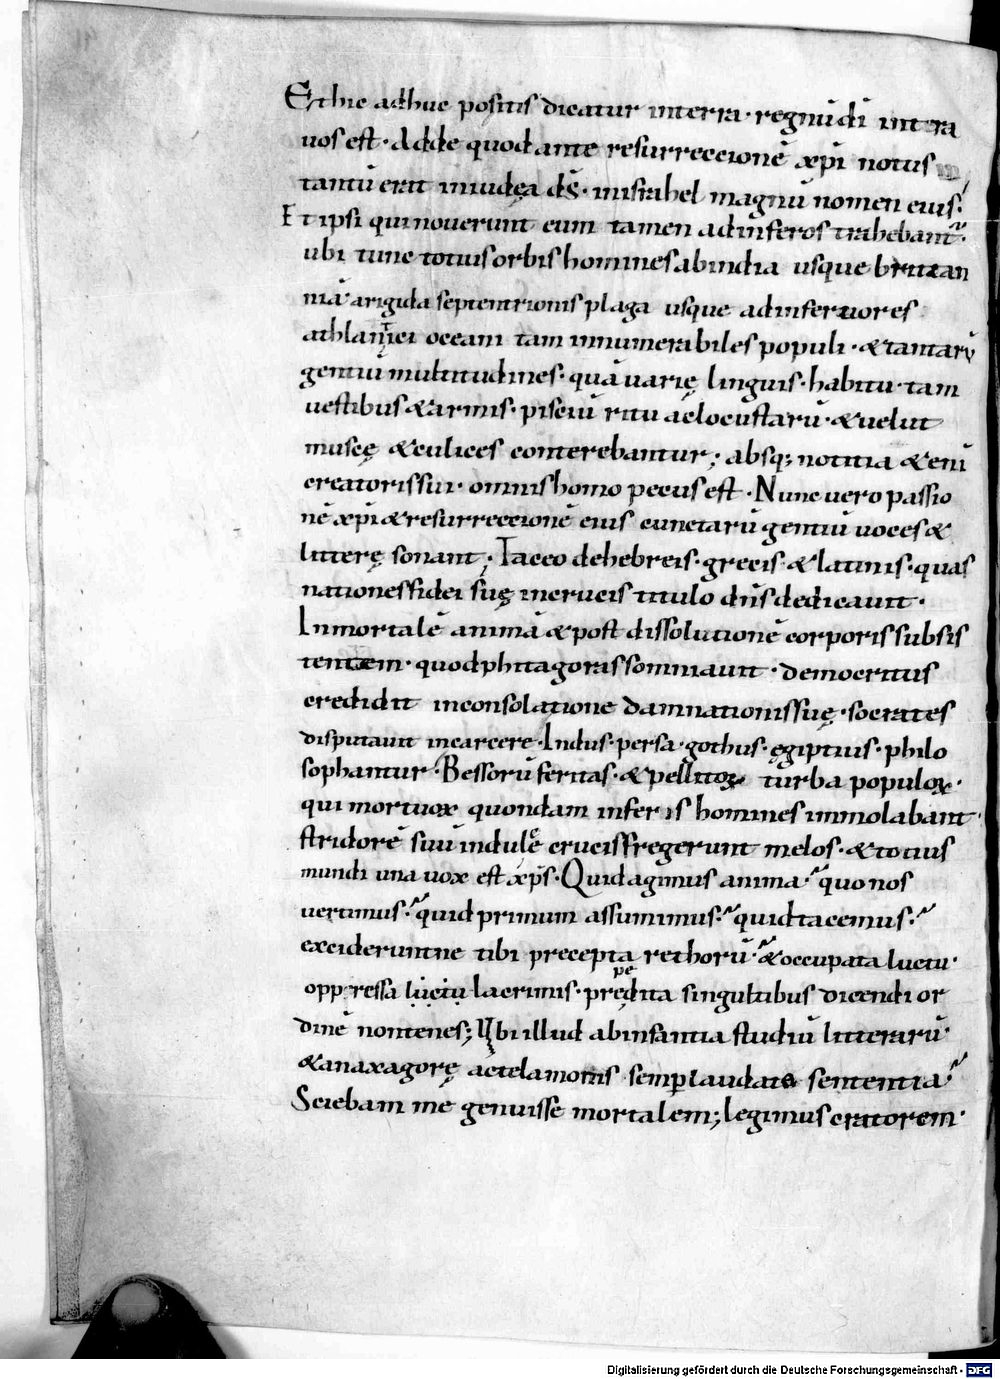 Et hic adhuc positis dicatur interra· regnū dī intra
uos est· Adde quod ante resurreccionē xp̄i notus
tantū erat iniudęa dS̄· inisrahel magnū nomen eius·
Et ipsi qui nouerunt eum tamen adinferos trahebant̃·
ubi tunc totius orbis homines abindia usque brittan
niā arigida septentrionis plaga usque adinferuores
athlantici oceani tam innumerabiles populi· & tantarū
gentiū multitudines· quā uarię linguis· habitu· tam
uestibus & armis· pisciū ritu ac locustarū· & uelut
muscę & culices conterebantur; absq; notitia & enī
creatoris sui· omnis homo pecus est· Nunc uero passio
nē xp̄i & resurreccionē eius cunctarū gentiū uoces &
litterę sonant; Taceo dehebreis· grecis· & latinis· quas
nationes fidei suę incrucis titulo dn̄s dedicauit·
Inmortalē animā & post dissolutionē corporis subsis
tentem· quod phitagoras somniauit· democritus
credidit inconsolatione damnationis suę· socrates
disputauit incarcere· Indus· persa· gothus· ęgiptius· philo
sophantur· Bessorū feritas· & pellitoꝝ turba populoꝝ·
qui mortuoꝝ quondam inferis homines immolabant·
stridorē suū indulcē crucis fregerunt melos· & totius
mundi una uox est xp̄s· Quid agimus anima· quo nos
uertimus· quid primum assumimus· quid tacemus·
exciderunt ne tibi precepta rethorū· & occupata luctu·
oppressa luctu lacrimis· prepedita singultibus dicendi or
dinē non tenes; Ubi illud abinfantia studiū litterarū·
& anaxagorę ac telamonis semp laudata sententia·
Sciebam me genuisse mortalem; legimus cratorem·
Digitalisierung gefördert durch die Deutsche Forschungsgemeinschaft - DFG